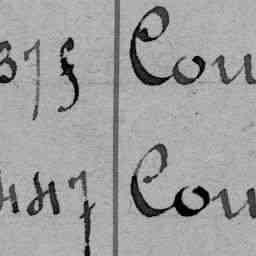 375 Cou
447 Cou